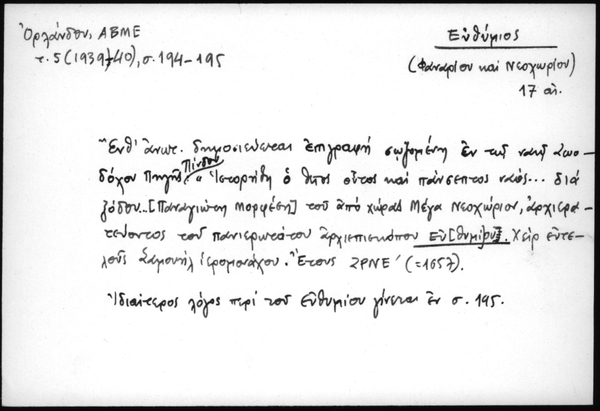 Ὀρλάνδου, ΑΒΜΕ
τ. 5 (1939/40), σ. 194-195
Εὐθύμιος
(Φαναρίου καὶ Νεοχωρίου)
17 αἰ.
Ἔνθ' ἄνωτ. δημοσιεύεται ἐπιγραφή σωζομένη ἐν τῷ ναῷ Ζωο-
δόχου Πηγῆς Πίνδου "Ἱστορήθη ὁ θεῖος οὗτος καὶ πάνσεπτος ναός... διά
ἐξόδου... [Παναγιώτη Μορφέση] τοῦ ἀπό χώρας Μέγα Νεοχώριον, ἀρχιερα-
τεύοντος τοῦ πανιερωτάτου ἀρχιεπισκόπου Εὐ[θυμίου]. Χείρ εὐτε-
λοῦς Σαμουήλ ἱερομονάχου. Ἔτους ΖΡΝΕ' (=1657).
Ἰδιαίτερος λόγος περί τοῦ Εὐθυμίου γίνεται ἐν σ. 195.